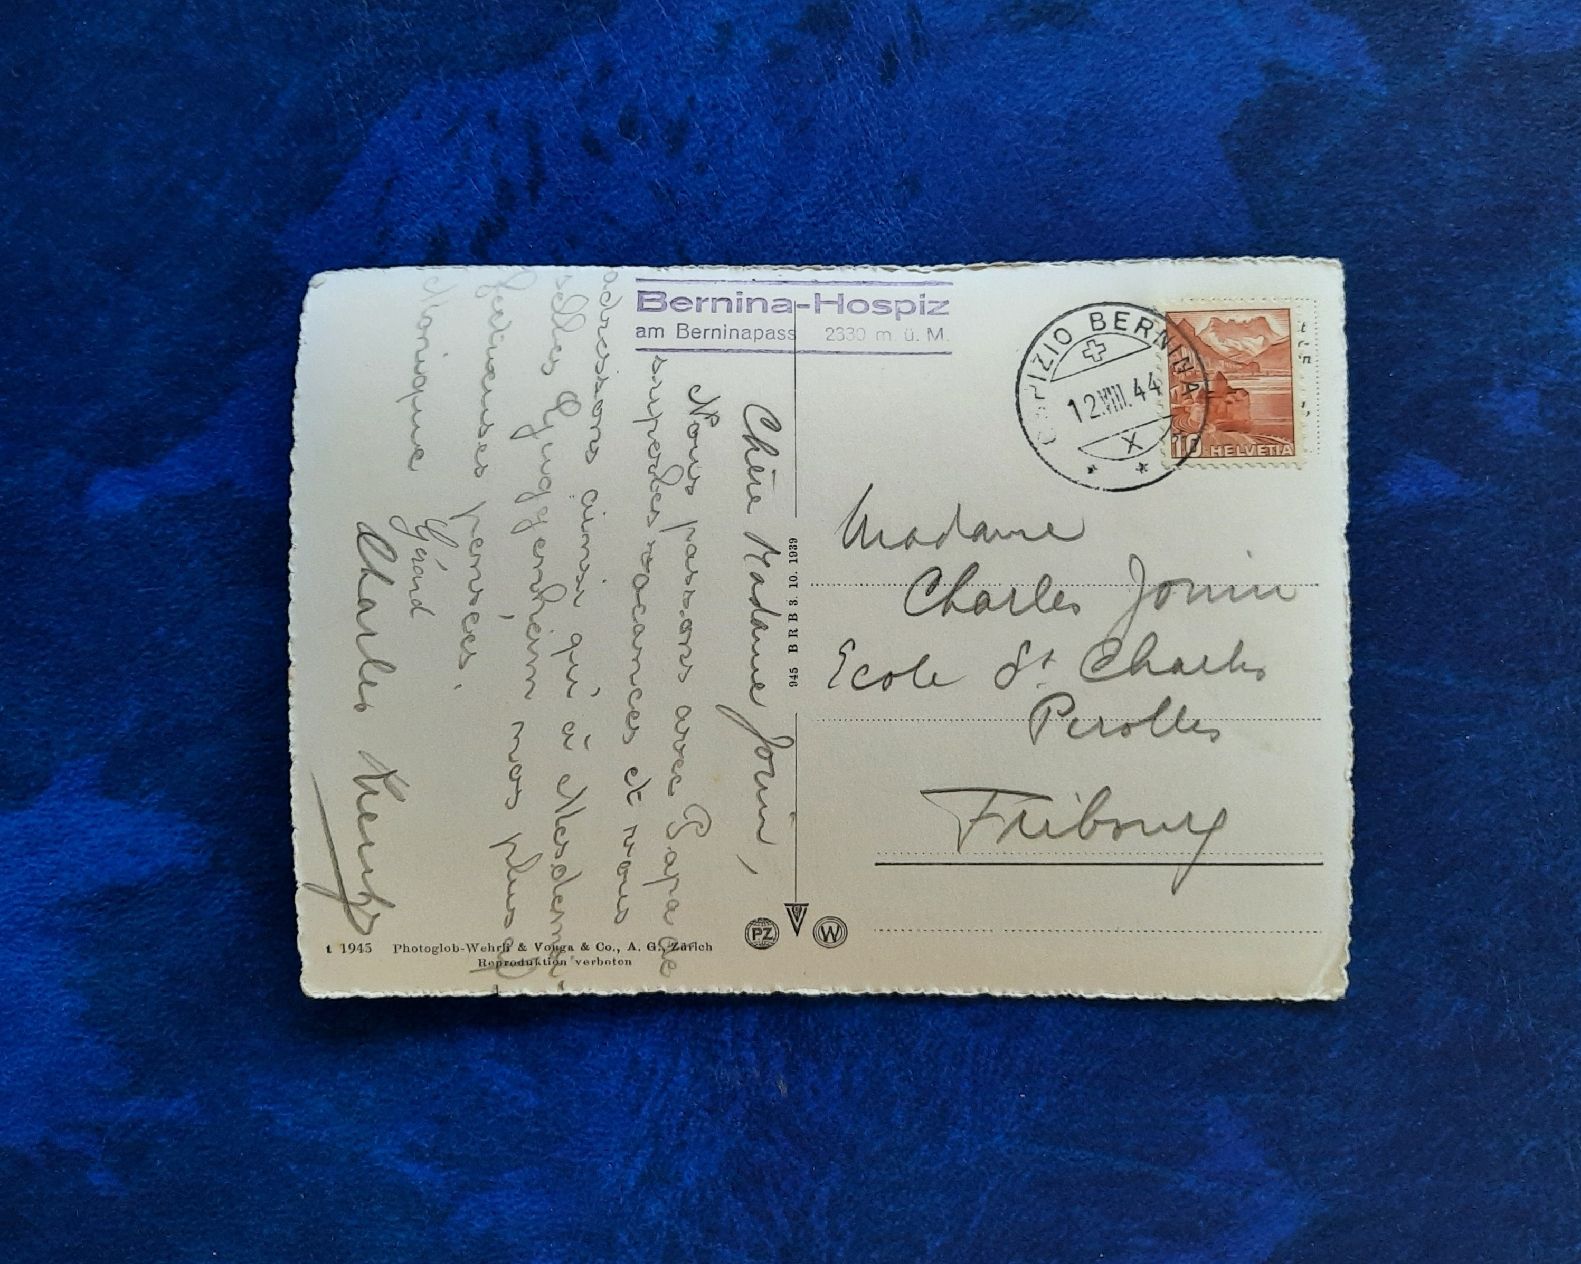 Bernina-Hospiz
am Berninapass 2330 m. ü. M.
OSPIZIO BERNINA
12.VIII.44
X
10 HELVETIA
Chère Madame Jonin,
Nous passons avec Papa de
superbes vacances et vous
adressons ainsi qu'à Mesdemoi-
selles Guggenheim nos plus
précieuses pensées.
Monique Gérard
Charles
Madame
Charles Jonin
Ecole St. Charles
Perolles
Fribourg
945 BRB 3. 10. 1939
PZ
W
t 1945 Photoglob-Wehrli & Vouga & Co., A. G., Zürich
Reproduktion verboten